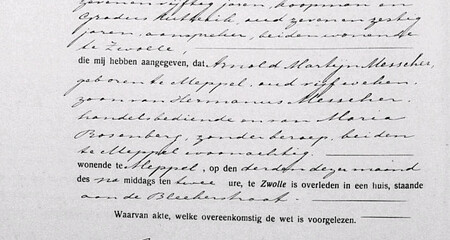 zeven en vijftig jaren, koopman en
Gradus, oud zeven en zestig
jaren, aanspreker, beiden wonende
te Zwolle,
die mij hebben aangegeven, dat Arnold Martijn Messcher,
geboren te Meppel, oud vijf weken,
zoon van Hermanus Messcher,
handelsbediende en van Maria
Rosenberg, zonder beroep, beiden
te Meppel woonachtig.
wonende te Meppel, op den derden dezer maand
des na middags ten twee ure, te Zwolle is overleden in een huis, staande
aan de Bleekerstraat.
Waarvan akte, welke overeenkomstig de wet is voorgelezen.